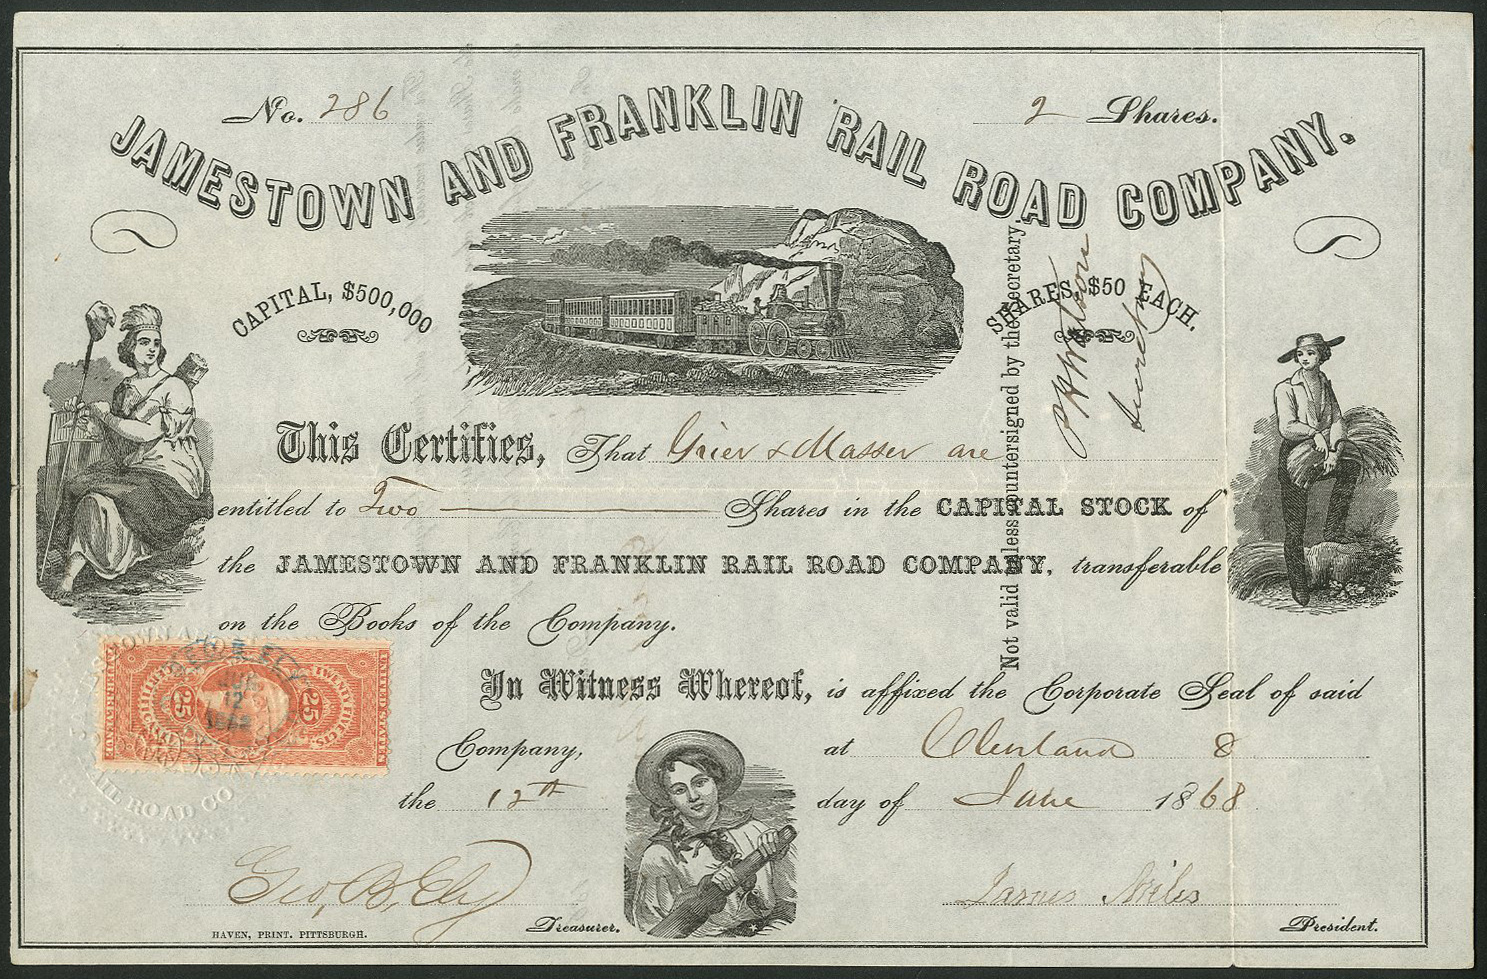 No. 286
2 Shares.
JAMESTOWN AND FRANKLIN RAIL ROAD COMPANY.
CAPITAL, $500,000
SHARES, $50 EACH.
Not valid unless countersigned by the Secretary.
Secretary
This Certifies, That Grier & Masser are
entitled to Two Shares in the CAPITAL STOCK of
the JAMESTOWN AND FRANKLIN RAIL ROAD COMPANY, transferable
on the Books of the Company.
In Witness Whereof, is affixed the Corporate Seal of said
Company, at Cleveland O
the 12th day of June 1868
Geo, B. Ely
Treasurer.
James Miles
President.
HAVEN, PRINT. PITTSBURGH.
25 25
TWENTY FIVE CTS.
UNITED STATES
RAIL ROAD CO